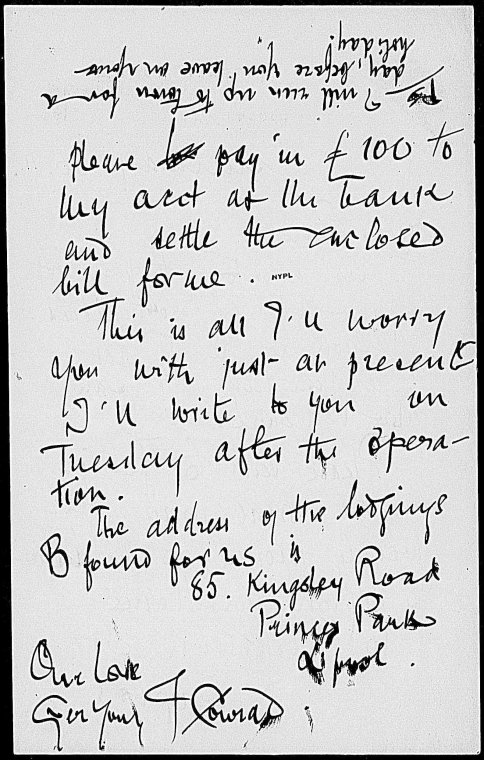 PS I will run up to town for a
day, before you leave on your
holiday!
please pay in £100 to
my acct at the bank
and settle the enclosed
bill for me.
NYPL
This is all I'll worry
you with just at present
I'll write to you on
Tuesday after the opera-
tion.
The address of the lodgings
B found for us is
85. Kingsley Road
Princes Park
L'pool.
Our love
Ever Yours
J Conrad